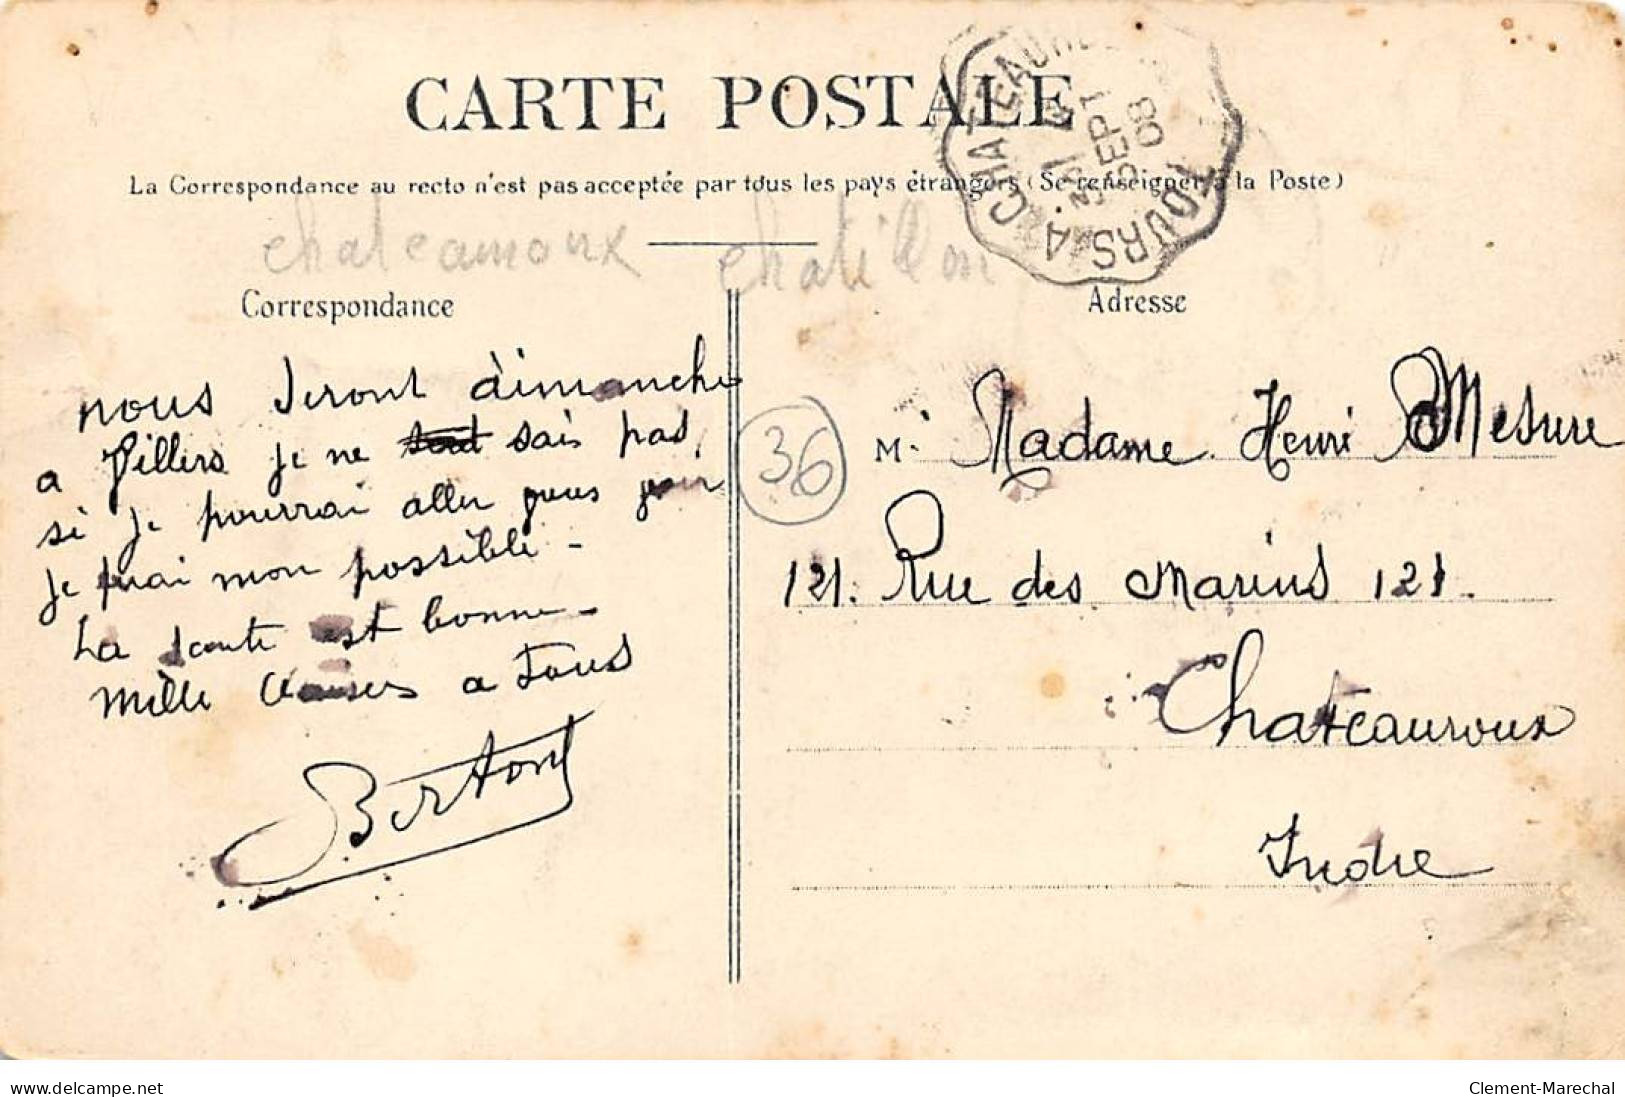 CARTE POSTALE
La Correspondance au recto n'est pas acceptée par tous les pays étrangers (Se renseigner à la Poste)
TOURS A CHATEAUR
SEPT
08
chateauroux chatillon
Correspondance
Adresse
nous seront dimanche
a Villers je ne sais pas
si je pourrai aller
je ferai mon possible -
La sante est bonne -
Mille a tous
Berton
36
M. Madame Henri Mesure
121. Rue des Marins 121.
Chateauroux
Indre
www.delcampe.net
Clement-Marechal